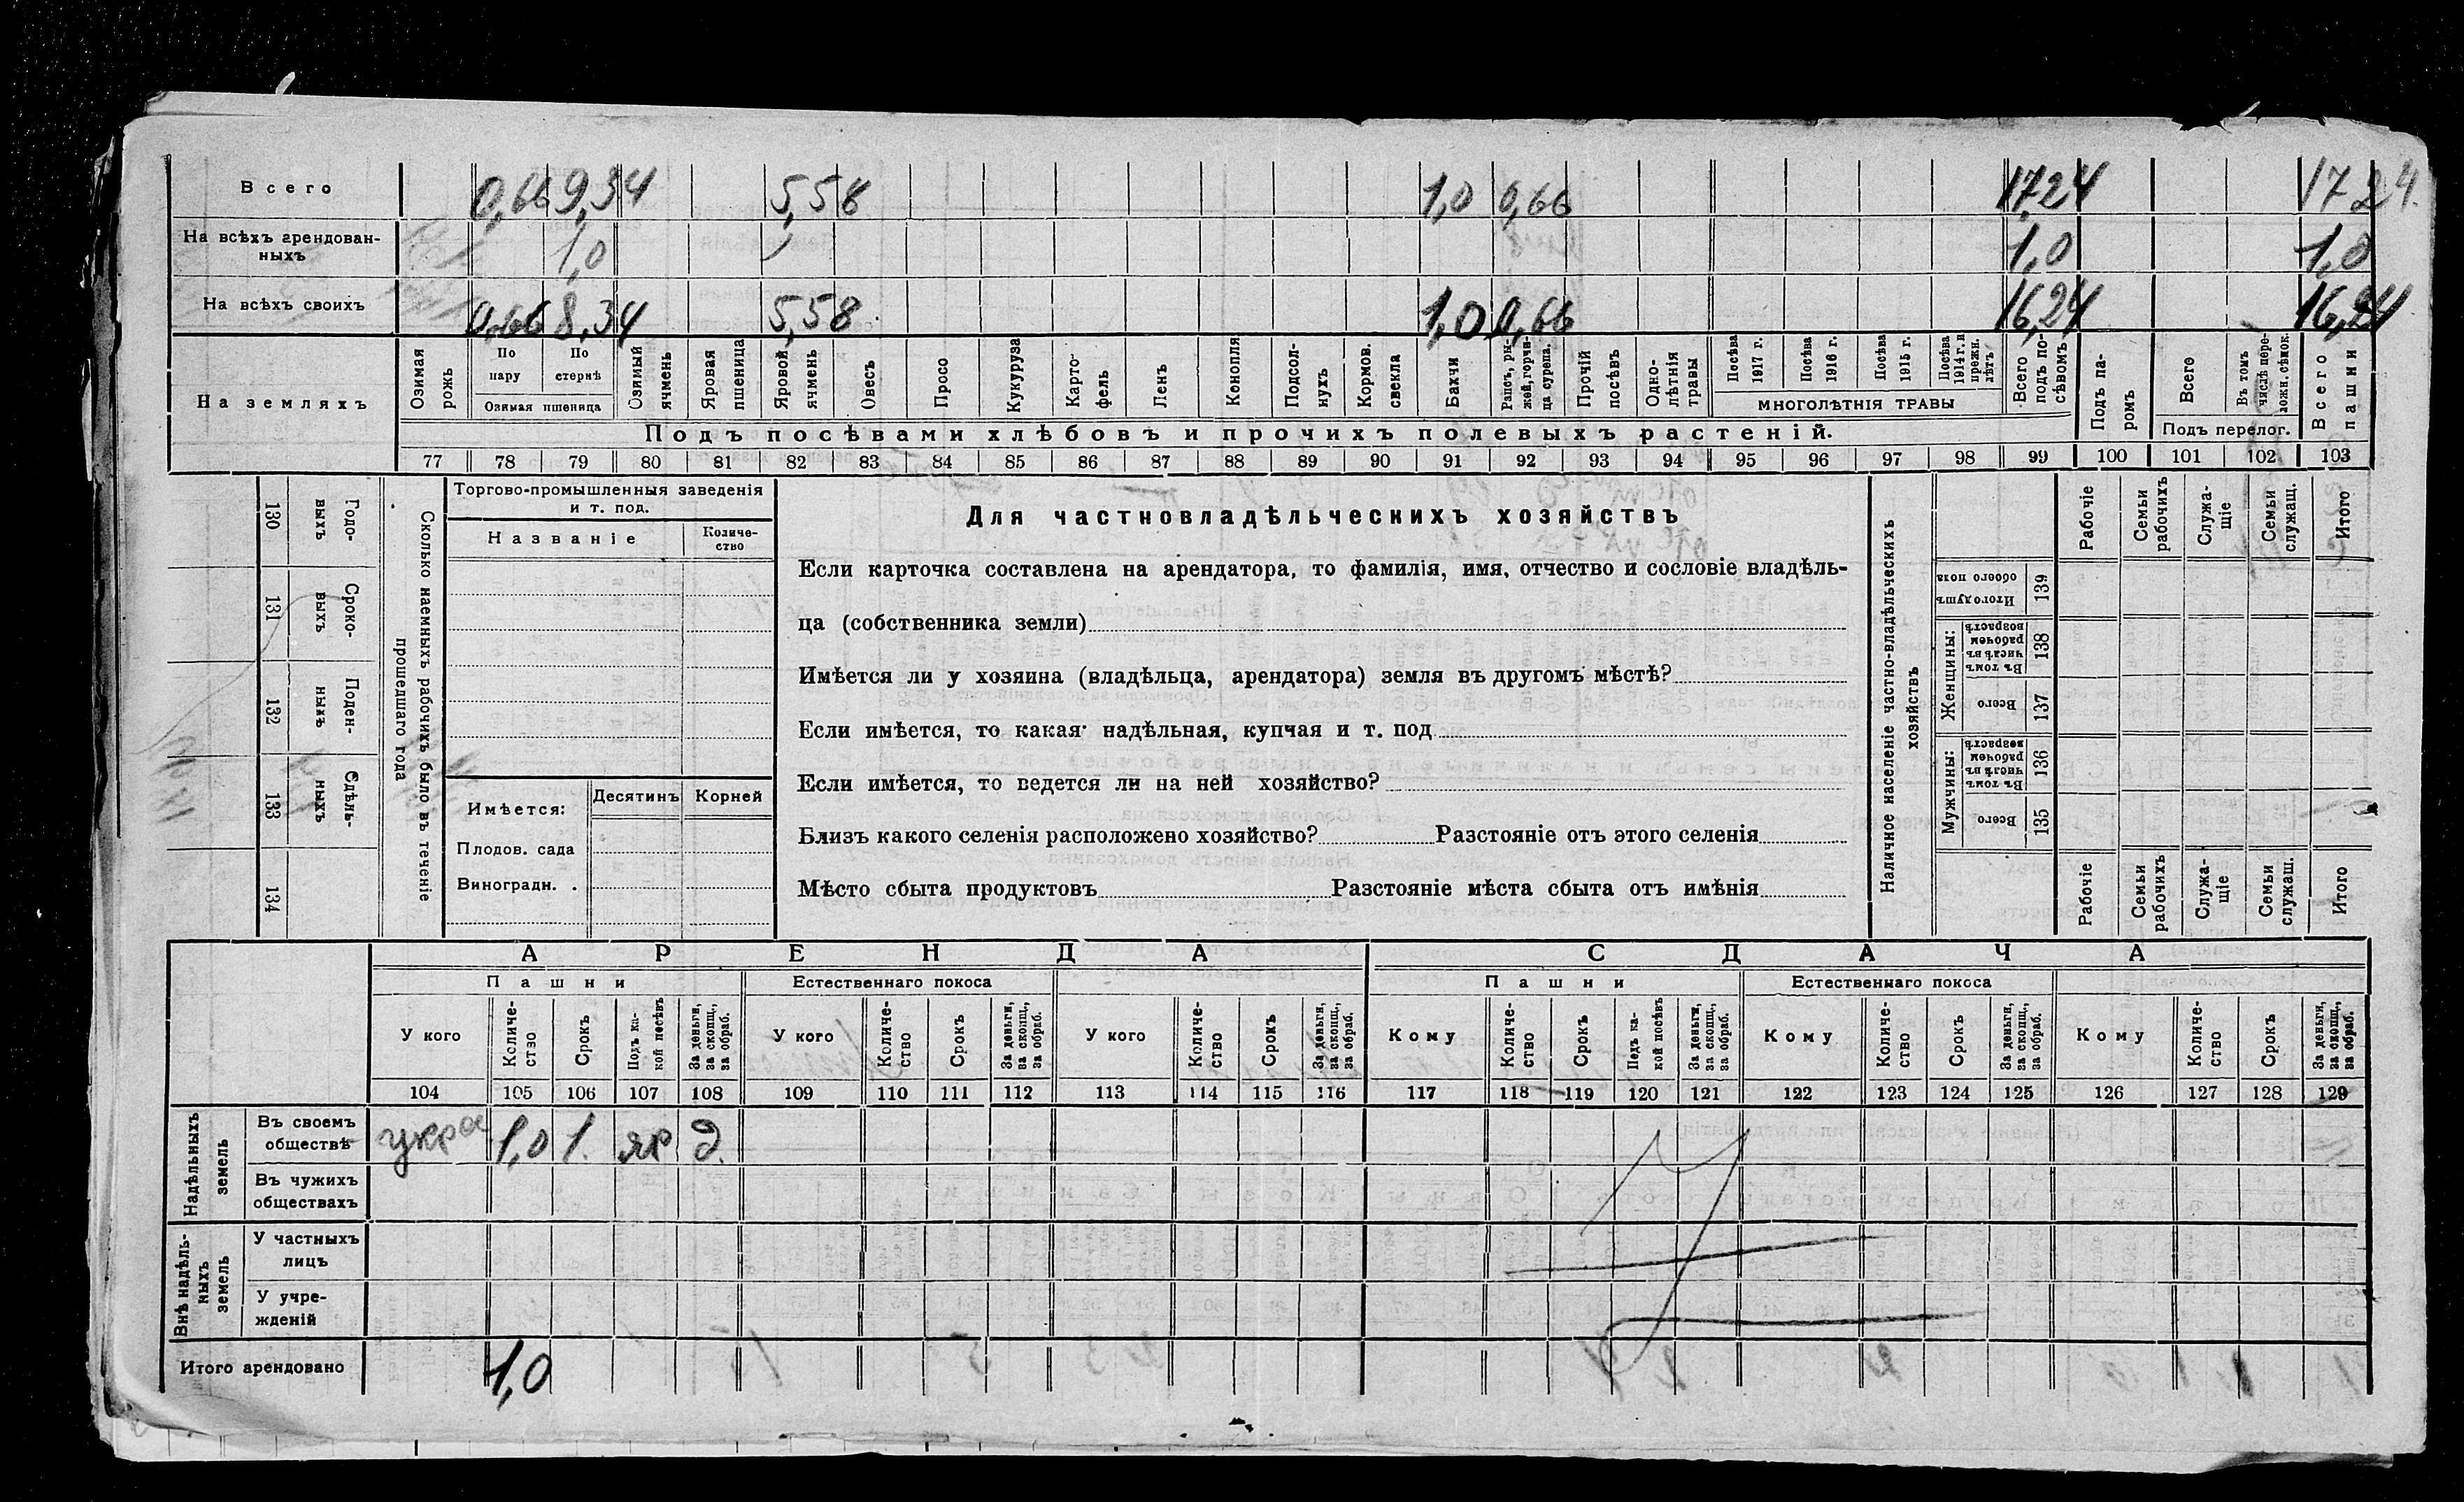 Всего 0,66 9,34 5,58 1,0 0,66 17,24 17 24.
На всѣхъ арендован-
ныхъ 1,0 1,0 1,0
На всѣхъ своихъ 0,66 8,34 5,58 1,0 0,66 16,24 16,24
На земляхъ
Озимая рожь
По пару
По стернѣ
Озимая пшеница
Озимый ячмень
Яровая пшеница
Яровой ячмень
Овесъ
Просо
Кукуруза
Карто-
фель
Ленъ
Конопля
Подсол-
нухъ
Кормов.
свекла
Бахчи
Рапсъ, ры-
жей, горчи-
ца сурепа.
Прочій посѣвъ
Одно-
лѣтнія
травы
Посѣва 1917 г.
Посѣва 1916 г.
Посѣва 1915 г.
Посѣва 1914 г. и прежн. лѣтъ
МНОГОЛѢТНІЯ ТРАВЫ
Всего подъ по-
сѣвомъ
Подъ па-
ромъ
Всего
Въ томъ числѣ пере-
ложн. сѣнок.
Подъ перелог.
Всего пашни
Подъ посѣвами хлѣбовъ и прочихъ полевыхъ растеній.
77 78 79 80 81 82 83 84 85 86 87 88 89 90 91 92 93 94 95 96 97 98 99 100 101 102 103
Сколько наемныхъ рабочихъ было въ теченіе
прошедшаго года
Годо-
выхъ
130
Сроко-
выхъ
131
Поден-
ныхъ
132
Сдѣль-
ныхъ
133
134
Торгово-промышленныя заведенія
и т. под.
Названіе
Количе-
ство
Имѣется: Десятинъ Корней
Плодов. сада
Виноградн. .
Для частновладѣльческихъ хозяйствъ
Если карточка составлена на арендатора, то фамилія, имя, отчество и сословіе владѣль-
ца (собственника земли)
Имѣется ли у хозяина (владѣльца, арендатора) земля въ другомъ мѣстѣ?
Если имѣется, то какая· надѣльная, купчая и т. под
Если имѣется, то ведется ли на ней хозяйство?
Близъ какого селенія расположено хозяйство? Разстояніе отъ этого селенія
Мѣсто сбыта продуктовъ Разстояніе мѣста сбыта отъ имѣнія
Наличное населеніе частно-владѣльческихъ
хозяйствъ
Рабочіе
Семьи рабочихъ
Служа-
щіе
Семьи служащ.
Итого
Итого душъ обоего пола
139
Женщины:
Въ томъ числѣ въ рабочемъ возрастѣ
138
Всего
137
Мужчины:
Въ томъ числѣ въ рабочемъ возрастѣ
136
Всего
135
Рабочіе
Семьи рабочихъ
Служа-
щіе
Семьи служащ.
Итого
АРЕНДА СДАЧА
Пашни Естественнаго покоса Пашни Естественнаго покоса
У кого
Количе-
ство
Срокъ
Подъ ка-
кой посѣвъ
За деньги, за скопщ., за обраб.
У кого
Количе-
ство
Срокъ
За деньги, за скопщ., за обраб.
У кого
Количе-
ство
Срокъ
За деньги, за скопщ., за обраб.
Кому
Количе-
ство
Срокъ
Подъ ка-
кой посѣвъ
За деньги, за скопщ., за обраб.
Кому
Количе-
ство
Срокъ
За деньги, за скопщ., за обраб.
Кому
Количе-
ство
Срокъ
За деньги, за скопщ., за обраб.
104 105 106 107 108 109 110 111 112 113 114 115 116 117 118 119 120 121 122 123 124 125 126 127 128 129
Надѣльныхъ
земель
Въ своемъ
обществѣ 1,0 1. яр д.
Въ чужихъ
обществахъ
Внѣ надѣль-
ныхъ
земель
У частныхъ
лицъ
У учре-
жденій
Итого арендовано 1,0